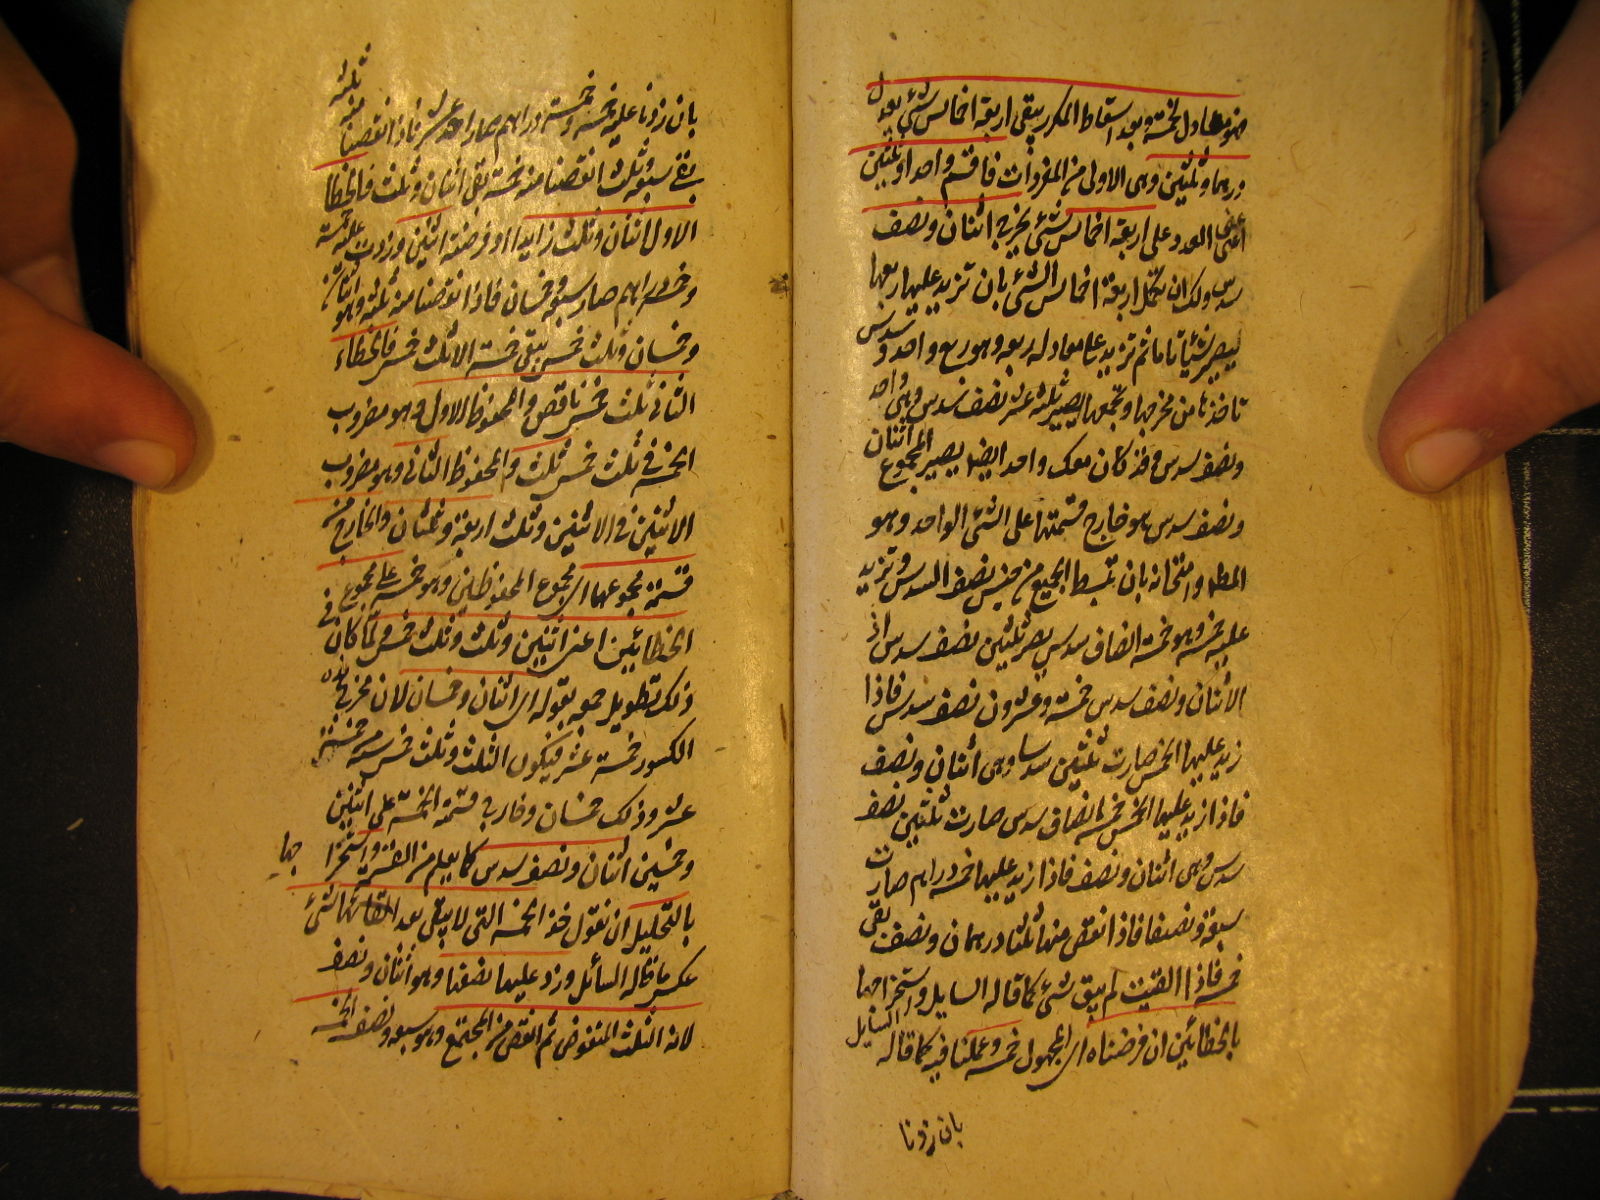 فهو معادل لخمسة وبعد اسقاط المكرر يبقى اربعة اخماس شئ يعدل
درهما وثلثين وهى الاولى من المفردات فاقسم واحدا وثلثين
اعنى العدد على اربعة اخماس شئ يخرج اثنان ونصف
سدس ولك ان تكمل اربعة اخماس الشئ بان تزيد عليها ربعها
ليصير شيئا تاما ثم تزيد على معادله ربعه وهو ربع واحد وسدس
تاخذها من مخرجها وتجمعها يصير ثلثة عشر نصف سدس وهى واحد
ونصف سدس وقد كان معك واحد ايضا يصير المجموع اثنان
ونصف سدس هو خارج قسمتها على الشئ الواحد وهو
المط وامتحانه بان تبسط الجميع من جنس نصف السدس وتزيد
عليه خمسه وهو خمسة انصاف سدس يصير ثلثين نصف سدس اذ
الاثنان ونصف سدس خمسة وعشرون نصف سدس فاذا
زيد عليها الخمس صارت ثلثين سدسا وهى اثنان ونصف
فاذا زيد عليها الخمس خمسة انصاف سدس صارت ثلثين نصف
سدس وهى اثنان ونصف فاذا زيد عليها خمسة دراهم صارت
سبعة ونصفا فاذا انقص منها ثلثها درهمان ونصف بقى
خمسة فاذا القيت لم يبق شئ كما قاله السايل واستخراجها
بالخطائين ان فرضناه اى المجهول خمسة وعملنا فيه كما قاله السايل
بان زدنا
بان زدنا عليه خمسه وخمسة دراهم صار احد عشر فاذا انقصنا منه ثلثه
بقى سبعة وثلث انقصنا منه خمسة بقى اثنان وثلث فالخطا
الاول اثنان وثلث زايدا او فرضنه اثنين وزدت عليه خمسه
وخمسة دراهم صار سبعة وخمسان فاذا نقصنا منه ثلثه وهو اثنان
وخمسان وثلث خمس يبقى خمسة الا ثلث خمس فالخطاء
الثانى ثلث خمس ناقص والمحفوظ الاول وهو مضروب
الخمسة فى ثلث خمس ثلث والمحفوظ الثانى وهو مضروب
الاثنين فى الاثنين وثلث اربعة وثلثان والخارج من
قسمة مجموعهما اى مجموع المحفوظين وهو خمسة على مجموع
الخطائين اعنى اثنين وثلث وثلث خمس ولما كان فى
ذلك تطويل جمعه بقوله اى اثنان وخمسان لان مخرج هذه
الكسور خمسة عشر فيكون الثلث وثلث خمس ستة من خمسة
عشر وذلك خمسان وخارج قسمة الخمسة على اثنين
وخمسين اثنان ونصف سدس كما يعلم من القسمة واستخراجها
بالتحليل ان نقول خذ الخمسة التى لا يبقى بعد القائها شئ
عكس ما قاله السائل وزد عليها نصفها وهو اثنان ونصف
لانه الثلث المنقوض ثم انقص من المجتمع وهو سبعة ونصف الخمسة